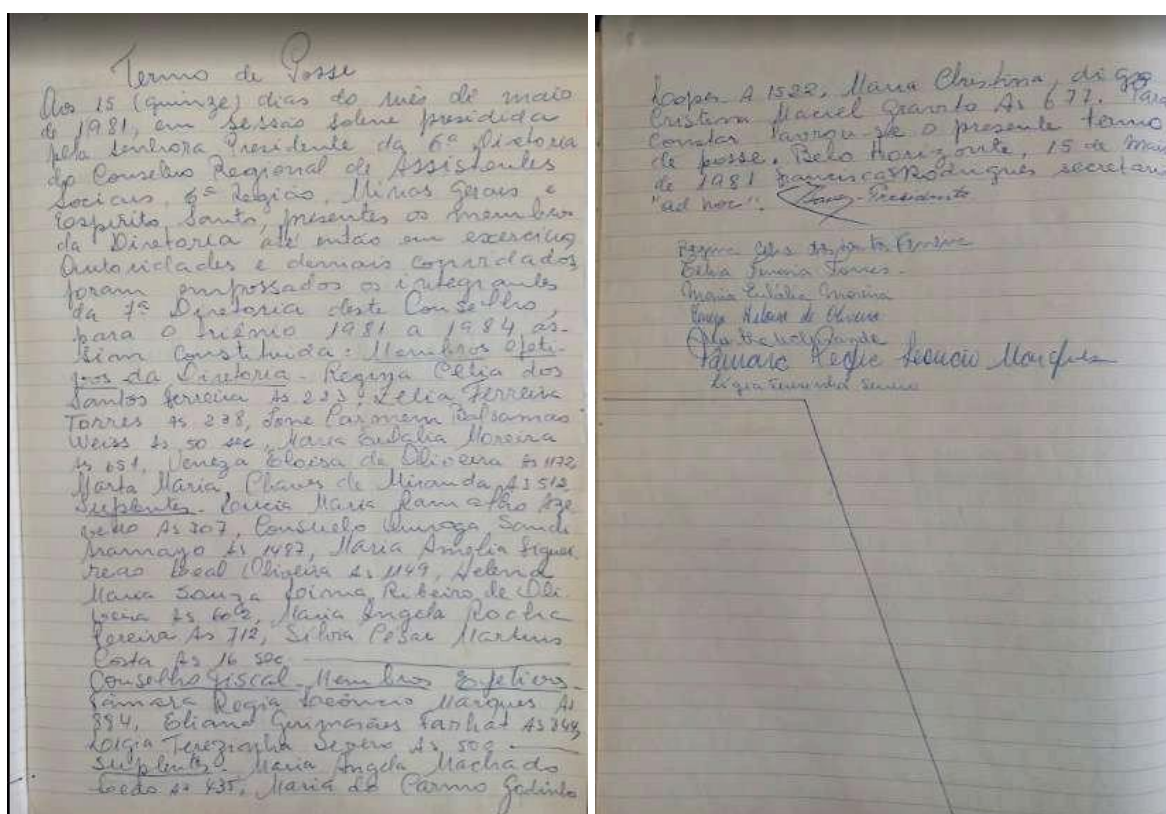 Termo de Posse
Aos 15 (quinze) dias do mês de maio
de 1981, em sessão solene presidida
pela senhora Presidente da 6ª Diretoria
do Conselho Regional de Assistentes
Sociais, 6ª Região, Minas Gerais e
Espírito Santo, presentes os membros
da Diretoria até então em exercício,
Autoridades e demais convidados
foram empossados os integrantes
da 7ª Diretoria deste Conselho,
para o triênio 1981 a 1984 as-
sim constituida: Membros Efeti-
vos da Diretoria - Regina Célia dos
Santos Ferreira As 223, Zélia Ferreira
Torres As 238, Ione Carmem Balsamao
Weiss As 50 sec, Maria Eulalia Moreira
As 651, Veneza Eloisa de Oliveira As 1172,
Marta Maria Chaves de Miranda AS 512
Suplentes - Lucia Maria Ramalho Aze
vedo As 307, Consuelo Quiroga
As 1487, Maria Amelia Siquei
Leal Oliveira As 1149, Helena
Maria Souza Joima Ribeiro de Oli
veira As 602, Maria Angela Rocha
Pereira As 712, Silvia Cesar Martins
Costa As 16 sec.
Conselho Fiscal - Membros Efetivos -
Tâmara Regia Leôncio Marques As
884, Eliana Guimarães Farhat AS 348,
Ligia Terezinha Severo As 500 -
Suplentes - Maria Angela Machado
As 435, Maria do Carmo Godinho
Lopes A 1522, Maria Christina, digo
Cristina Maciel Gravito As 677. Para
constar lavrou-se o presente termo
de posse. Belo Horizonte, 15 de Maio
de 1981 Francisca Rodrigues secretaria
"ad hoc". Presidente
Regina Célia dos Santos Ferreira
Zélia Ferreira Torres -
Maria Eulália Moreira
Veneza Heloisa de Oliveira
Tâmara Regia Leôncio Marques
Ligia Terezinha Severo